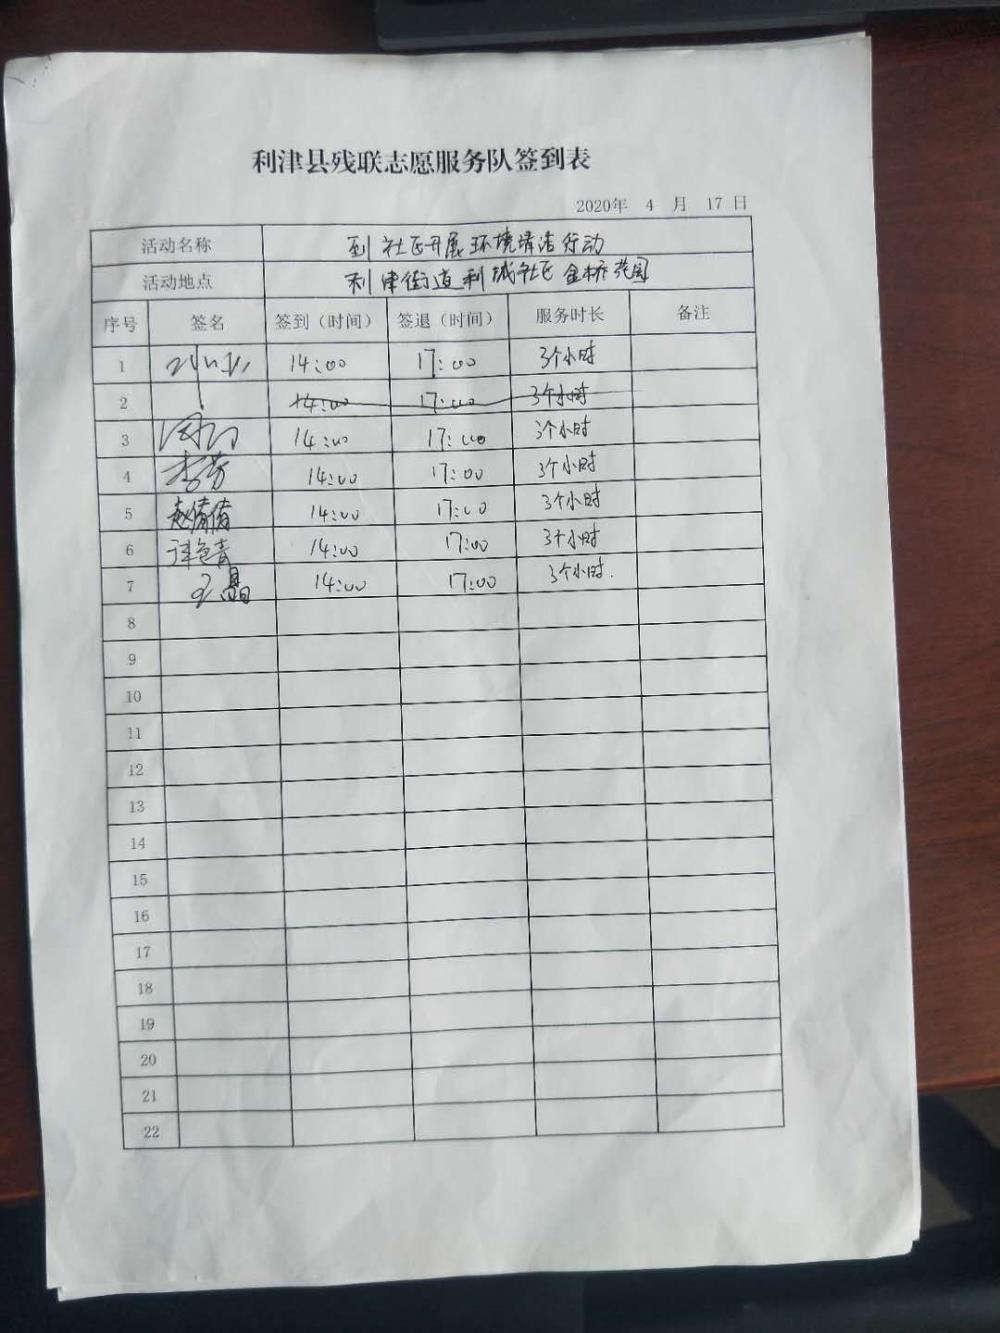 利津县残联志愿服务队签到表
2020年 4 月 17 日
活动名称 到社区开展环境清洁行动
活动地点 利津街道利城社区金桥花园
序号 签名 签到（时间） 签退（时间） 服务时长 备注
1 14:00 17:00 3个小时
2 14:00 17:00 3个小时
3 14:00 17:00 3个小时
4 李芳 14:00 17:00 3个小时
5 赵倩倩 14:00 17:00 3个小时
6 14:00 17:00 3个小时
7 王晶 14:00 17:00 3个小时.
8
9
10
11
12
13
14
15
16
17
18
19
20
21
22